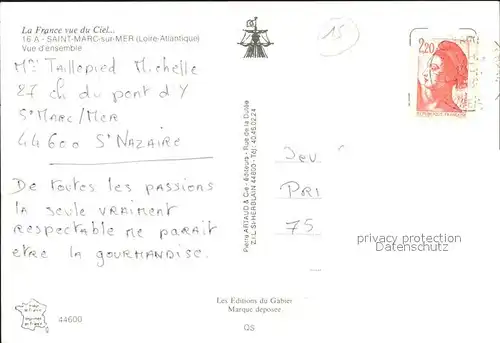 La France vue du Ciel...
16 A - SAINT-MARC-sur-MER (Loire-Atlantique)
Vue d'ensemble
Taillepied Michelle
27 ch du pont d Y
St MARC/MER
44600 St NAZAIRE
De toutes les passions
la seule vraiment
respectable me paraît
etre la gourmandise.
44600
Pierre ARTAUD & Cie - éditeurs - Rue de la Dutée
Z.I.L. St-HERBLAIN 44800 - Tél.: 40.46.02.24
15
2,20
REPUBLIQUE FRANÇAISE
Jeu
PRI
75
privacy protection
Datenschutz
Les Editions du Gabier
Marque déposée
QS